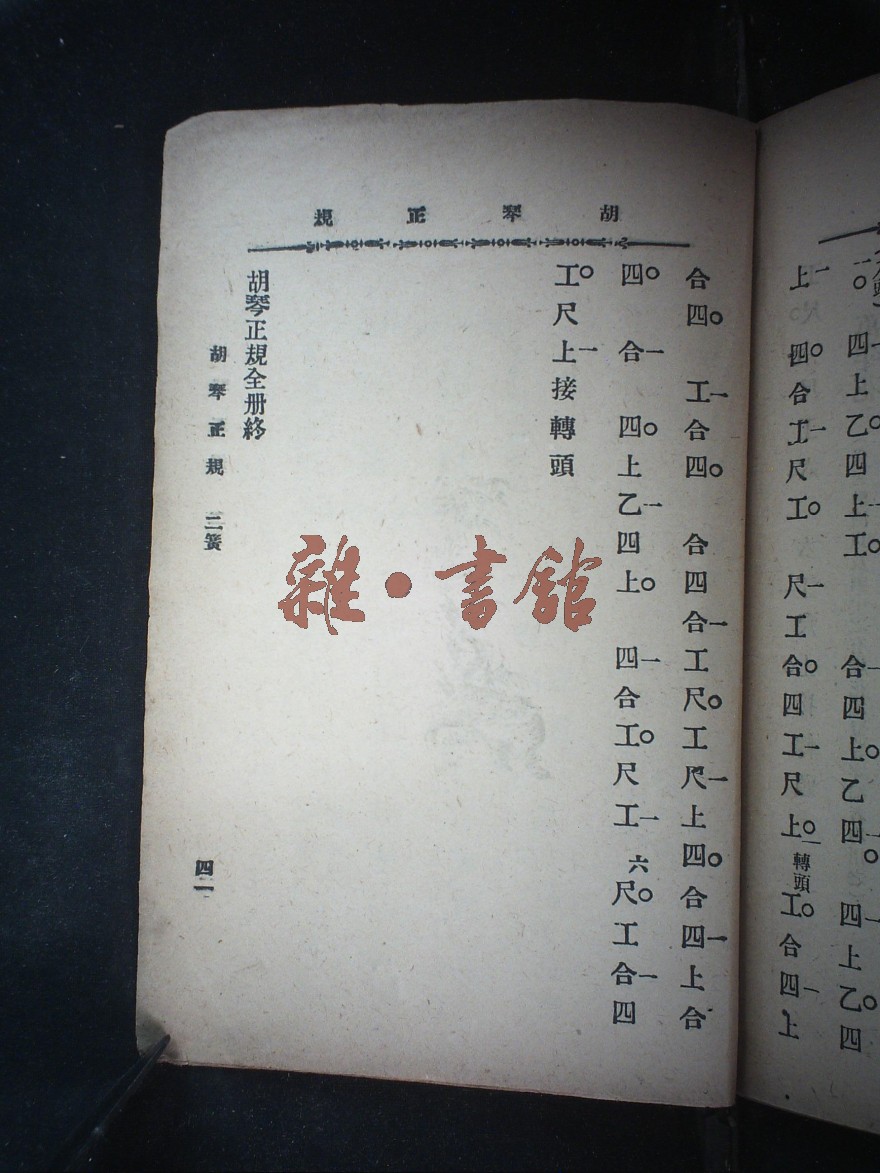 胡琴正規
合四○ 工一合四○ 合四合一工尺○工尺一上四○合四一上合
四○ 合一 四○上乙一四上○ 四一合工○尺工一六尺○工合一四
工○尺上一接轉頭
胡琴正規全册終
胡琴正規 二簧
四二
四一上乙○四上一工○ 合一四上○乙四一○四一上乙○四
上一 四○合工一尺工○ 尺一工合○四工一尺上○一轉頭工○合四一上
雜·書館